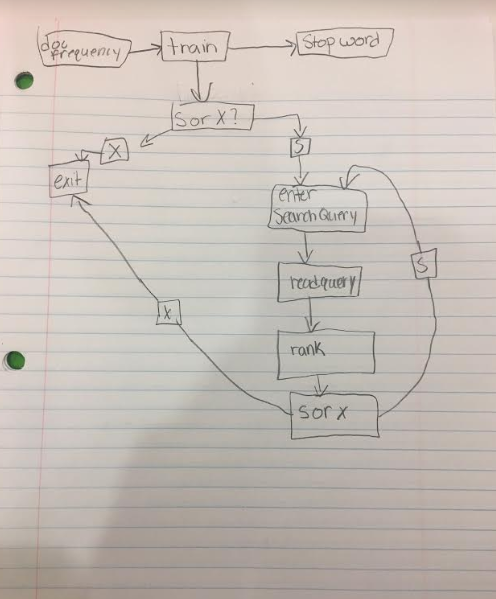 doc
frequency
train
Stop word
S or X?
X
S
exit
enter
Search Query
readquery
S
X
rank
S or X